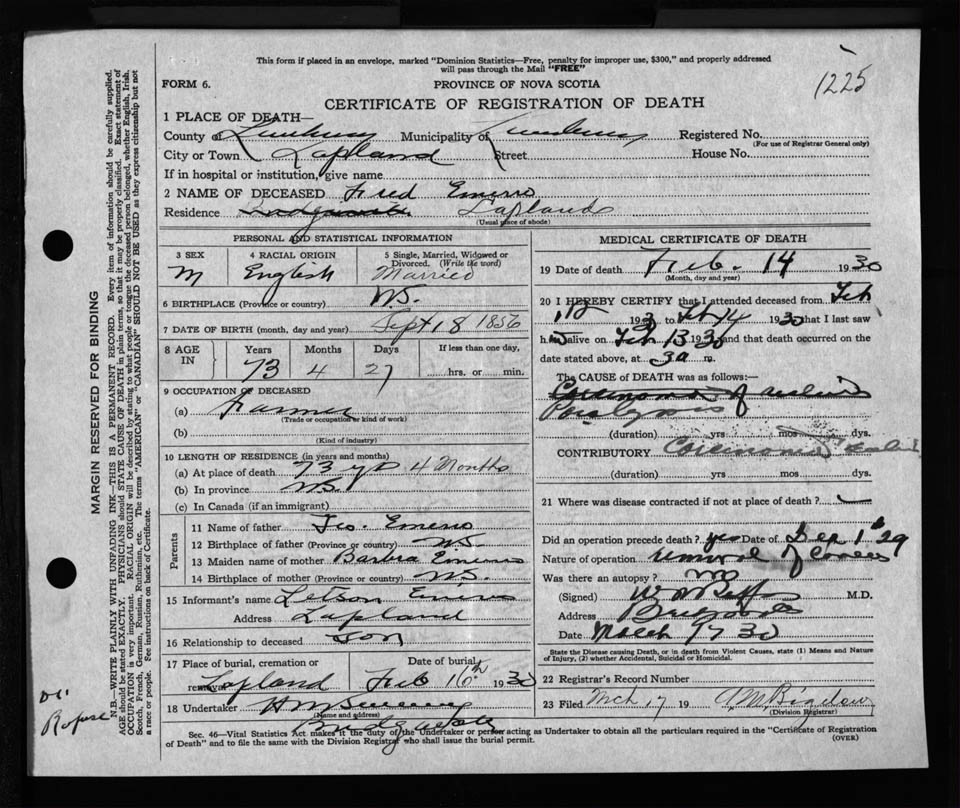 This form if placed in an envelope, marked "Dominion Statistics—Free, penalty for improper use, $300," and properly addressed
will pass through the Mail "FREE"
1225
FORM 6.
PROVINCE OF NOVA SCOTIA
CERTIFICATE OF REGISTRATION OF DEATH
1 PLACE OF DEATH—
County of Lunenburg Municipality of Lunenburg Registered No.
(For use of Registrar General only)
City or Town Lapland Street House No.
If in hospital or institution, give name
2 NAME OF DECEASED Fred Emeno
Residence Bridgewater Lapland
(Usual place of abode)
PERSONAL AND STATISTICAL INFORMATION
3 SEX 4 RACIAL ORIGIN 5 Single, Married, Widowed or
Divorced. (Write the word)
M English Married
6 BIRTHPLACE (Province or country) N.S.
7 DATE OF BIRTH (month, day and year) Sept 18 1856
8 AGE IN Years Months Days If less than one day,
73 4 27 hrs. or min.
9 OCCUPATION OF DECEASED
(a) Farmer
(Trade or occupation or kind of work)
(b)
(Kind of industry)
10 LENGTH OF RESIDENCE (in years and months)
(a) At place of death 73 yr 4 Months
(b) In province N.S.
(c) In Canada (if an immigrant)
Parents
11 Name of father Emeno
12 Birthplace of father (Province or country) N.S.
13 Maiden name of mother Barbra
14 Birthplace of mother (Province or country) N.S.
15 Informant's name Emeno
Address Lapland
16 Relationship to deceased Son
17 Place of burial, cremation or Date of burial
removal Lapland Feb 16th 1930
18 Undertaker
(Name and address)
Bridgewater
MEDICAL CERTIFICATE OF DEATH
19 Date of death Feb. 14 1930
(Month, day and year)
20 I HEREBY CERTIFY that I attended deceased from Feb
12 193 to Feb 14 1930 that I last saw
him alive on Feb 13 1930 and that death occurred on the
date stated above, at 3 a m.
The CAUSE of DEATH was as follows:—
Carcinoma of
Paralysis
(duration) yrs mos dys.
CONTRIBUTORY Carcinoma
(duration) yrs. mos. dys.
21 Where was disease contracted if not at place of death?
Did an operation precede death? yes Date of Sep 1st 29
Nature of operation removal of Cancer
Was there an autopsy? no
(Signed) M.D.
Address Bridgewater
Date March 30
State the Disease causing Death, or in death from Violent Causes, state (1) Means and Nature
of Injury, (2) whether Accidental, Suicidal or Homicidal.
22 Registrar's Record Number
23 Filed Mch 17 19
(Division Registrar)
Sec. 46—Vital Statistics Act makes it the duty of the Undertaker or person acting as Undertaker to obtain all the particulars required in the "Certificate of Registration
of Death" and to file the same with the Division Registrar who shall issue the burial permit.
(OVER)
MARGIN RESERVED FOR BINDING
N.B.—WRITE PLAINLY WITH UNFADING INK—THIS IS A PERMANENT RECORD. Every item of information should be carefully supplied.
AGE should be stated EXACTLY. PHYSICIANS should STATE CAUSE OF DEATH in plain terms, so that it may be properly classified. Exact statement of
OCCUPATION is very important. RACIAL ORIGIN will be described by stating to what people or tongue the deceased person belonged, whether English, Irish,
Scotch, French, German, Russian, Ruthenian, etc. The terms "AMERICAN" or "CANADIAN" SHOULD NOT BE USED as they express citizenship but not
a race or people. See instructions on back of Certificate.